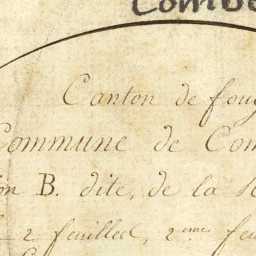 Combe
Canton de foug
Commune de Com
on B. dite, de la
2 feuilles, 2.eme feu